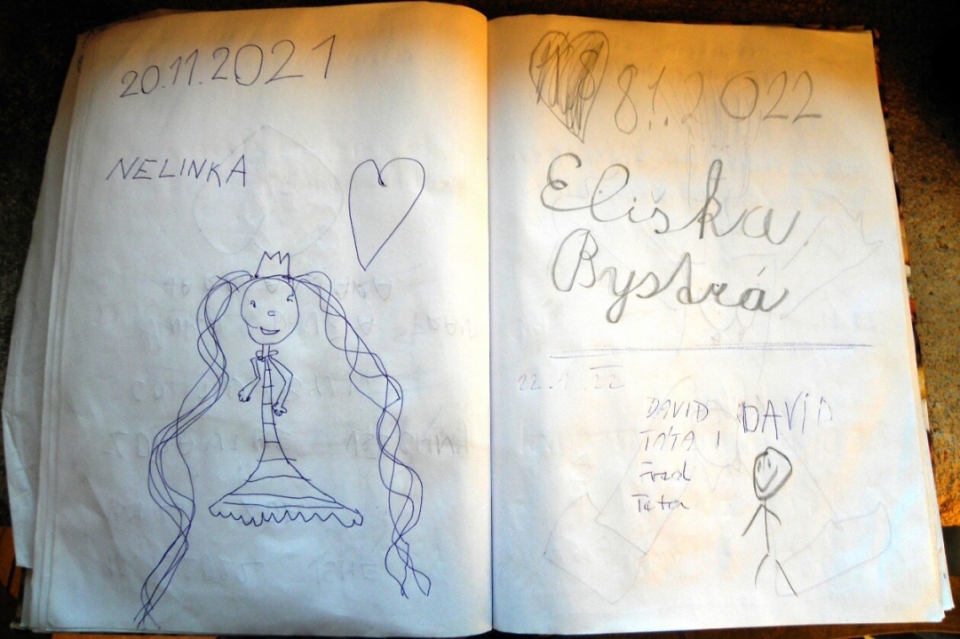 20.11.2021
NELINKA
8.1.2022
Eliška
Bystrá
22.1.22
DAVID DAVID
TÁTA I
Táta